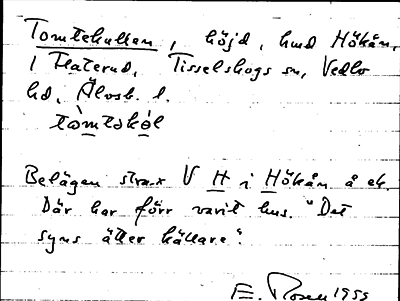 Tomtekullen, höjd, hmd Hökån,
i Haterud, Tisselskogs sn, Vedbo
hd, Älvsb. l.
tòmtəkél
Belägen strax V H i Hökån å ek.
Där har förr varit hus. "Det
syns ätter källare".
E. Rosen 1955